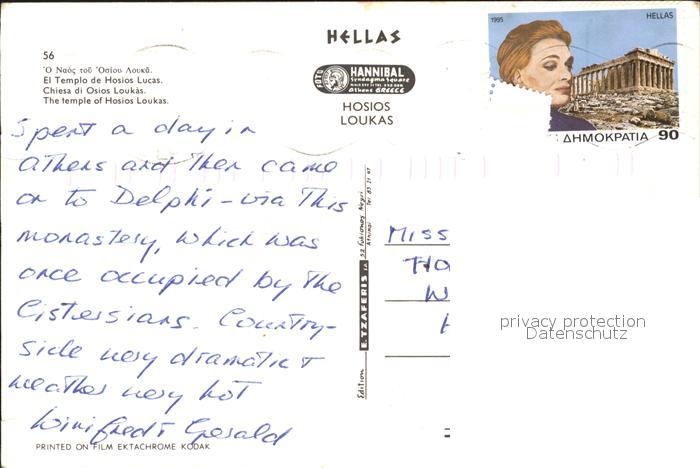 HELLAS
1995 HELLAS
56
Ὁ Ναὸς τοῦ Ὁσίου Λουκᾶ.
El Templo de Hosios Lucas.
Chiesa di Osios Loukàs.
The temple of Hosios Loukas.
FOTO HANNIBAL
Syndagma Square
Athens GREECE
HOSIOS
LOUKAS
ΔΗΜΟΚΡΑΤΙΑ 90
Spent a day in
Athens and then came
on to Delphi - via this
monastery, which was
once occupied by the
Cistersians. Country-
side very dramatic +
weather very hot
Winifred + Gerald
PRINTED ON FILM EKTACHROME KODAK
Edition E. TZAFERIS SA
MISS
HO
W
privacy protection
Datenschutz